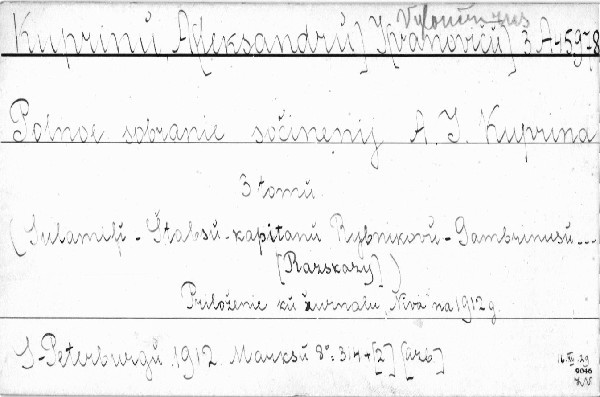 Kuprinŭ, A[leksandrŭ] I[vanovičŭ] 3 A-1597
Polnoe sobranie sočinenij A. I. Kuprina
3 tomŭ.
(Sulamifj - Štabsŭ-kapitanŭ Rybnikovŭ - Gambrinusŭ....
[Razskazy])
Priloženie kŭ žurnalu „Niva" na 1912 g.
S-Peterburgŭ. 1912. Marksŭ 8°: 314+[2]